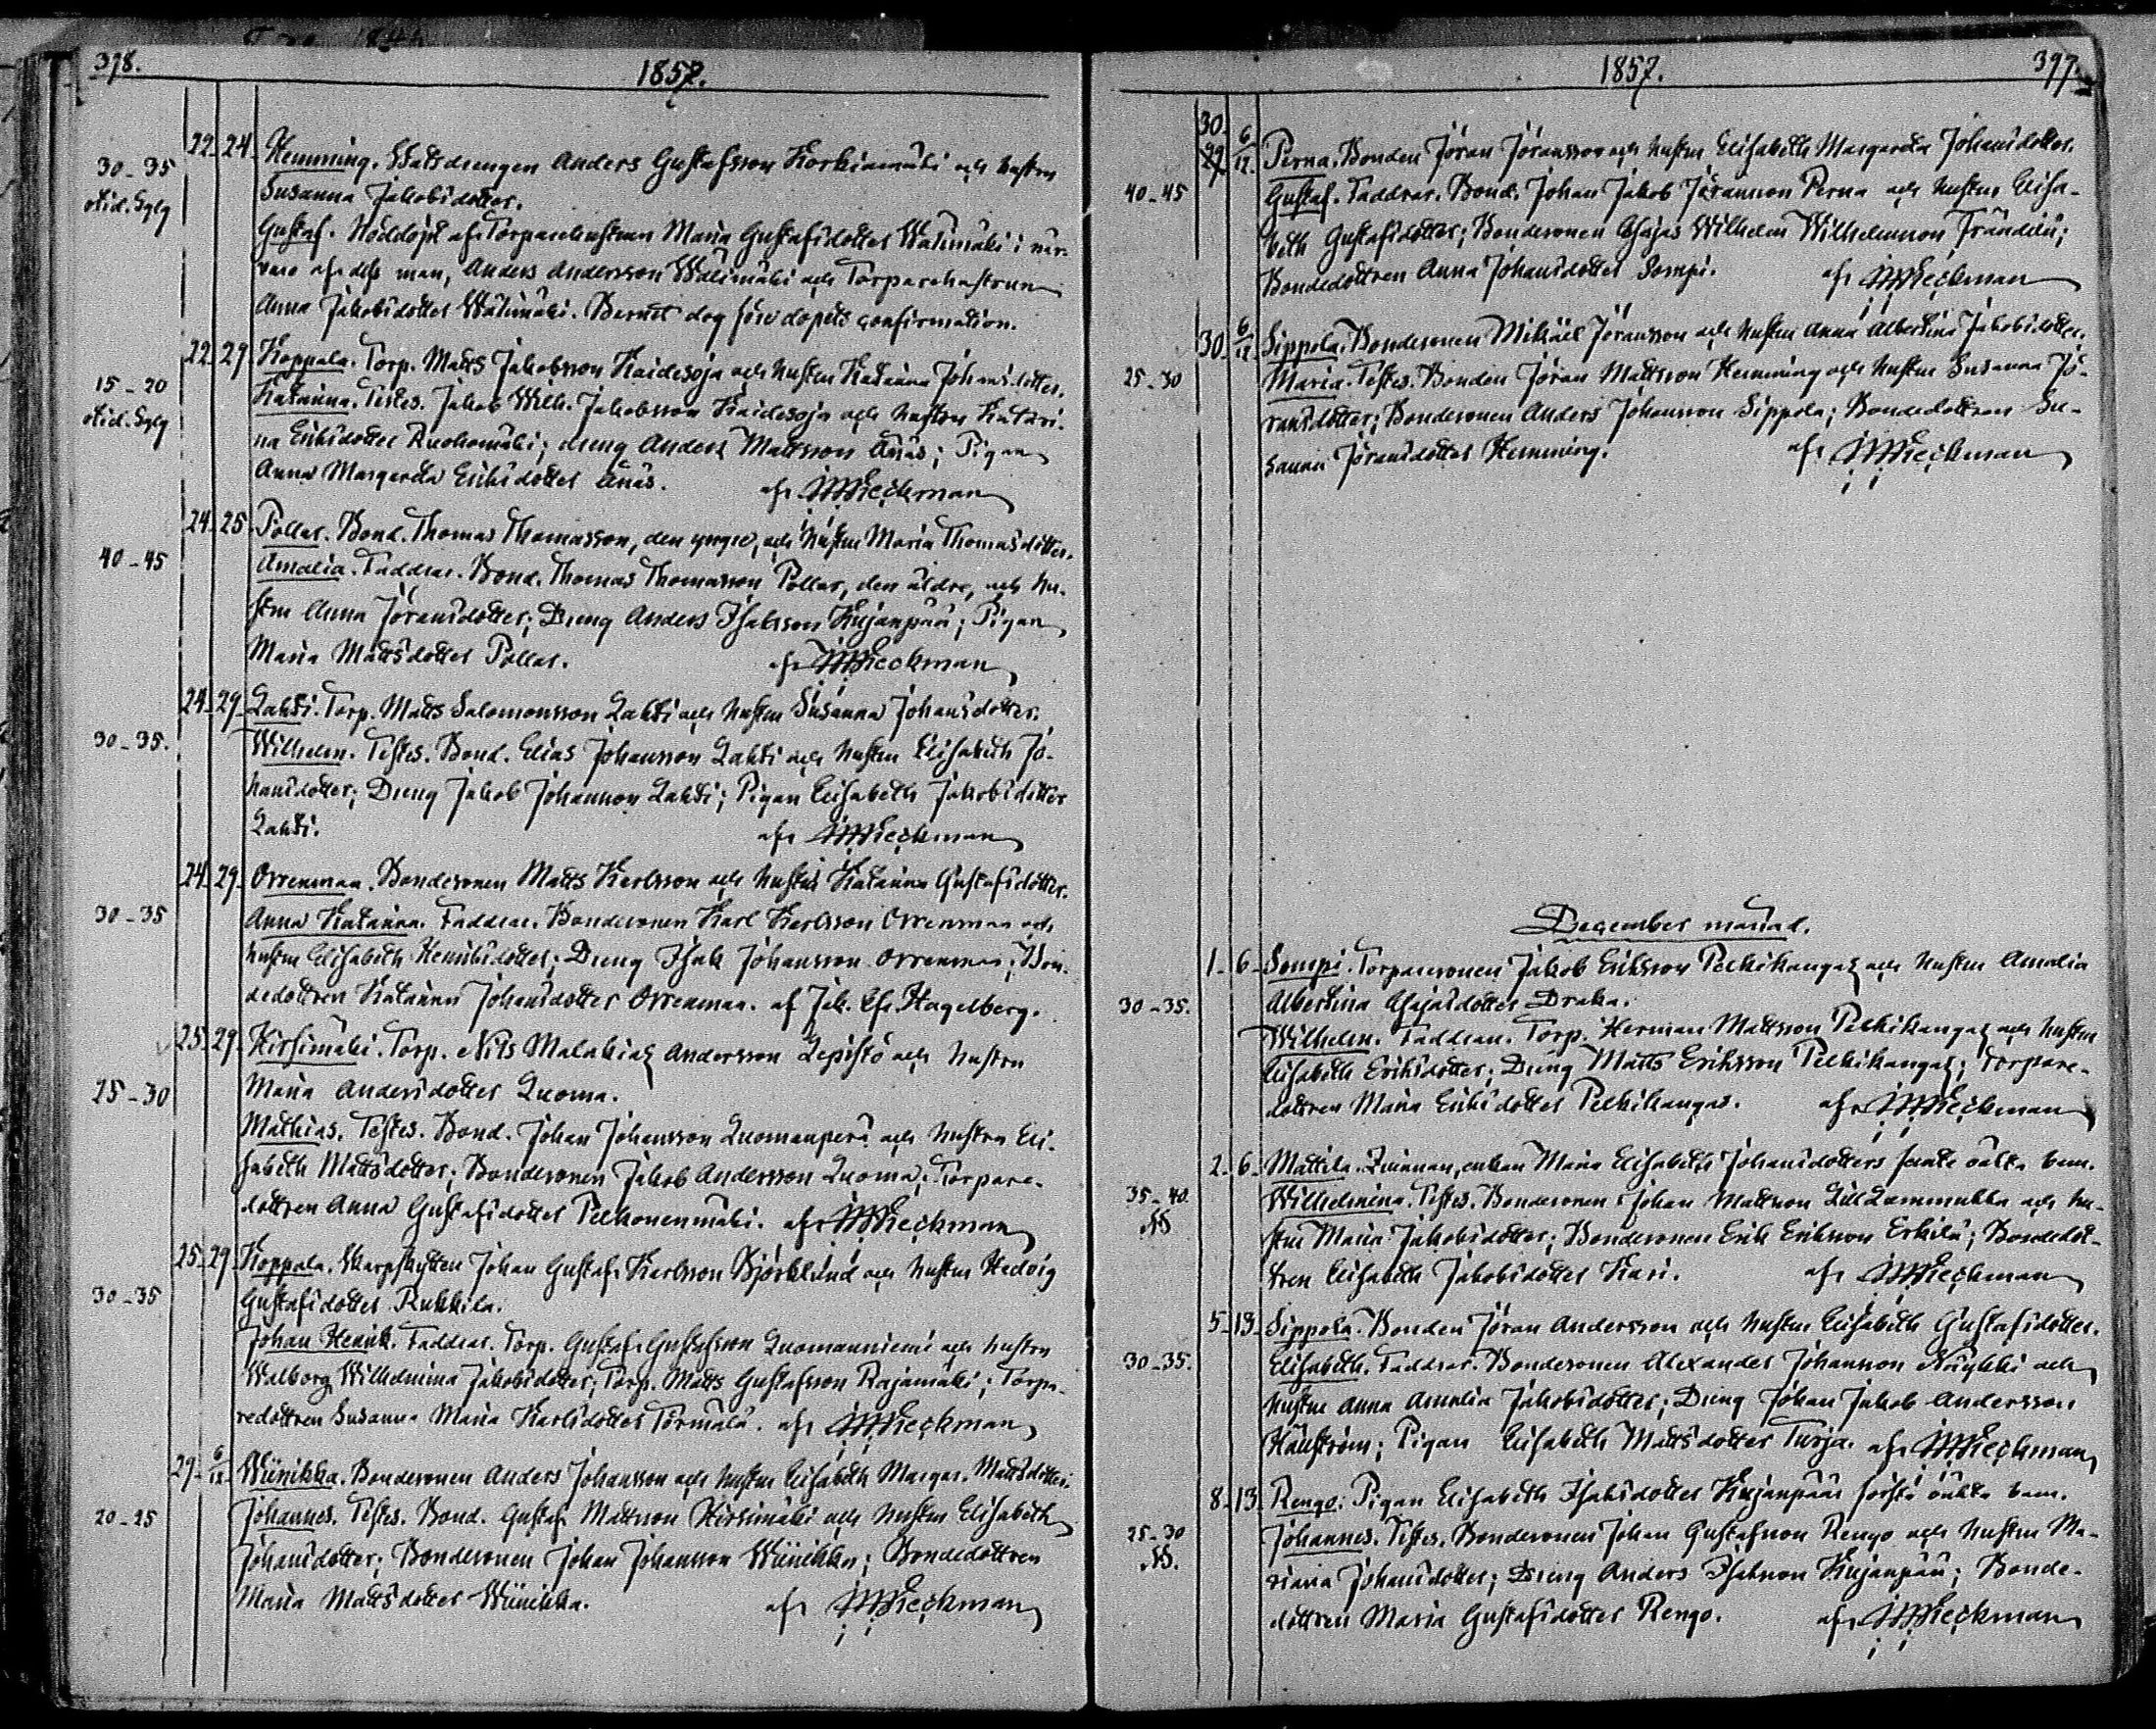 378.
1857.
22. 24. Hemming. Wattdrengen Anders Gustafsson Korkiamäki och hustru
30-35 Susanna Jakobsdotter.
otid. Sglg
Gustaf. Nöddöpt af Torparehustrun Maria Gustafsdotter Wälimäki i när-
varo af dess man, Anders Andersson Wälimäki och Torparehustrun
Anna Jakobsdotter Wälimäki. Barnet dog före dopets confirmation.
22. 29. Koppala. Torp. Matts Jakobsson Kaidesoja och hustru Katarina Johansdotter.
15-20 Katarina. Testes. Jakob Wilh. Jakobsson Kaidesoja och hustru Katari-
otid. Sglg
na Eriksdotter Ruohomäki; dreng Anders Mattsson Ånäs; Pigan
Anna Margareta Eriksdotter Ånäs. af MWieckman
24. 25. Pollar. Bond. Thomas Thomasson, den yngre, och hustru Maria Thomasdotter.
40-45 Amalia. Faddrar. Bond. Thomas Thomasson Pollar, den äldre, och hu-
stru Anna Jöransdotter; Dreng Anders Isaksson Kujanpää; Pigan
Maria Mattsdotter Pollar. af MWieckman
24. 29. Lahti. Torp. Matts Salomonsson Lahti och hustru Susanna Johansdotter.
30-35. Wilhelm. Testes. Bond. Elias Johansson Lahti och hustru Elisabeth Jo-
hansdotter; Dreng Jakob Johansson Lahti; Pigan Elisabeth Jakobsdotter
Lahti. af MWieckman
24. 29. Orrenmaa. Bondesonen Matts Karlsson och hustru Katarina Gustafsdotter.
30-35 Anna Katarina. Faddrar. Bondesonen Karl Karlsson Orrenmaa och
hustru Elisabeth Henriksdotter; Dreng Isak Johansson Orrenmaa; Bon-
dedottren Katarina Johansdotter Orrenmaa. af Jak. Ef. Hagelberg.
25. 29. Kirsimäki. Torp. Nils Malakias Andersson Lepistö och hustru
25-30 Maria Andersdotter Luoma.
Mathias. Testes. Bond. Johan Johansson Luomanperä och hustru Eli-
sabeth Mattsdotter; Bondesonen Jakob Andersson Luoma; Torpare-
dottren Anna Gustafsdotter Pelkonenmäki. af MWieckman
25. 29. Koppala. Skarpskytten Johan Gustaf Karlsson Björklund och hustru Hedvig
30-35 Gustafsdotter Rukkila.
Johan Henrik. Faddrar. Torp. Gustaf Gustafsson Luomanniemi och hustru
Walborg Wilhelmina Jakobsdotter; Torp. Matts Gustafsson Rajamäki; Torpa-
redottren Susanna Maria Karlsdotter Törmälä. af MWieckman
29. 6/12. Wiinikka. Bondesonen Anders Johansson och hustru Elisabeth Margar. Mattsdotter.
20-25 Johannes. Testes. Bond. Gustaf Mattsson Kirsimäki och hustru Elisabeth
Johansdotter; Bondesonen Johan Johansson Wiinikka; Bondedottren
Maria Mattsdotter Wiinikka. af MWieckman
1857. 397.
30.
29 6/12. Perna. Bonden Jöran Jöransson och hustru Elisabeth Margareta Johansdotter.
40-45 Gustaf. Faddrar. Bond. Johan Jakob Jöransson Perna och hustru Elisa-
beth Gustafsdotter; Bondesonen Esajas Wilhelm Wilhelmsson Frändilä;
Bondedottren Anna Johansdotter Sompi. af MWieckman
30. 6/12. Sippola. Bondesonen Mikael Jöransson och hustru Anna Albertina Jakobsdotter.
25-30 Maria. Testes. Bonden Jöran Mattsson Hemming och hustru Susanna Jö-
ransdotter; Bondesonen Anders Johansson Sippola; Bondedottren Su-
sanna Jöransdotter Hemming. af MWieckman
December månad.
1. 6. Sompi. Torparesonen Jakob Eriksson Pelkikangas och hustru Amalia
30-35. Albertina Esajasdotter Draka.
Wilhelm. Faddrar. Torp. Herman Mattsson Pelkikangas och hustru
Elisabeth Eriksdotter; Dreng Matts Eriksson Pelkikangas; Torpare-
dottren Maria Eriksdotter Pelkikangas. af MWieckman
2. 6. Mattila. Qvinnan, enkan Maria Elisabeth Johansdotters femte oäkta barn.
35-40. Wilhelmina. Testes. Bondesonen Johan Mattsson Lill Lammukka och hu-
N
stru Maria Jakobsdotter; Bondesonen Erik Eriksson Erkilä; Bondedot-
tren Elisabeth Jakobsdotter Kari. af MWieckman
5. 13. Sippola. Bonden Jöran Andersson och hustru Elisabeth Gustafsdotter.
30-35. Elisabeth. Faddrar. Bondesonen Alexander Johansson Näykki och
hustru Anna Amalia Jakobsdotter; Dreng Johan Jakob Andersson
Hällström; Pigan Elisabeth Mattsdotter Turja. af MWieckman
8. 13. Rengo. Pigan Elisabeth Isaksdotter Kujanpääs första oäkta barn.
25-30 Johannes. Testes. Bondesonen Johan Gustafsson Rengo och hustru Ma-
N.
riana Johansdotter; Dreng Anders Isaksson Kujanpää; Bonde-
dottren Maria Gustafsdotter Rengo. af MWieckman